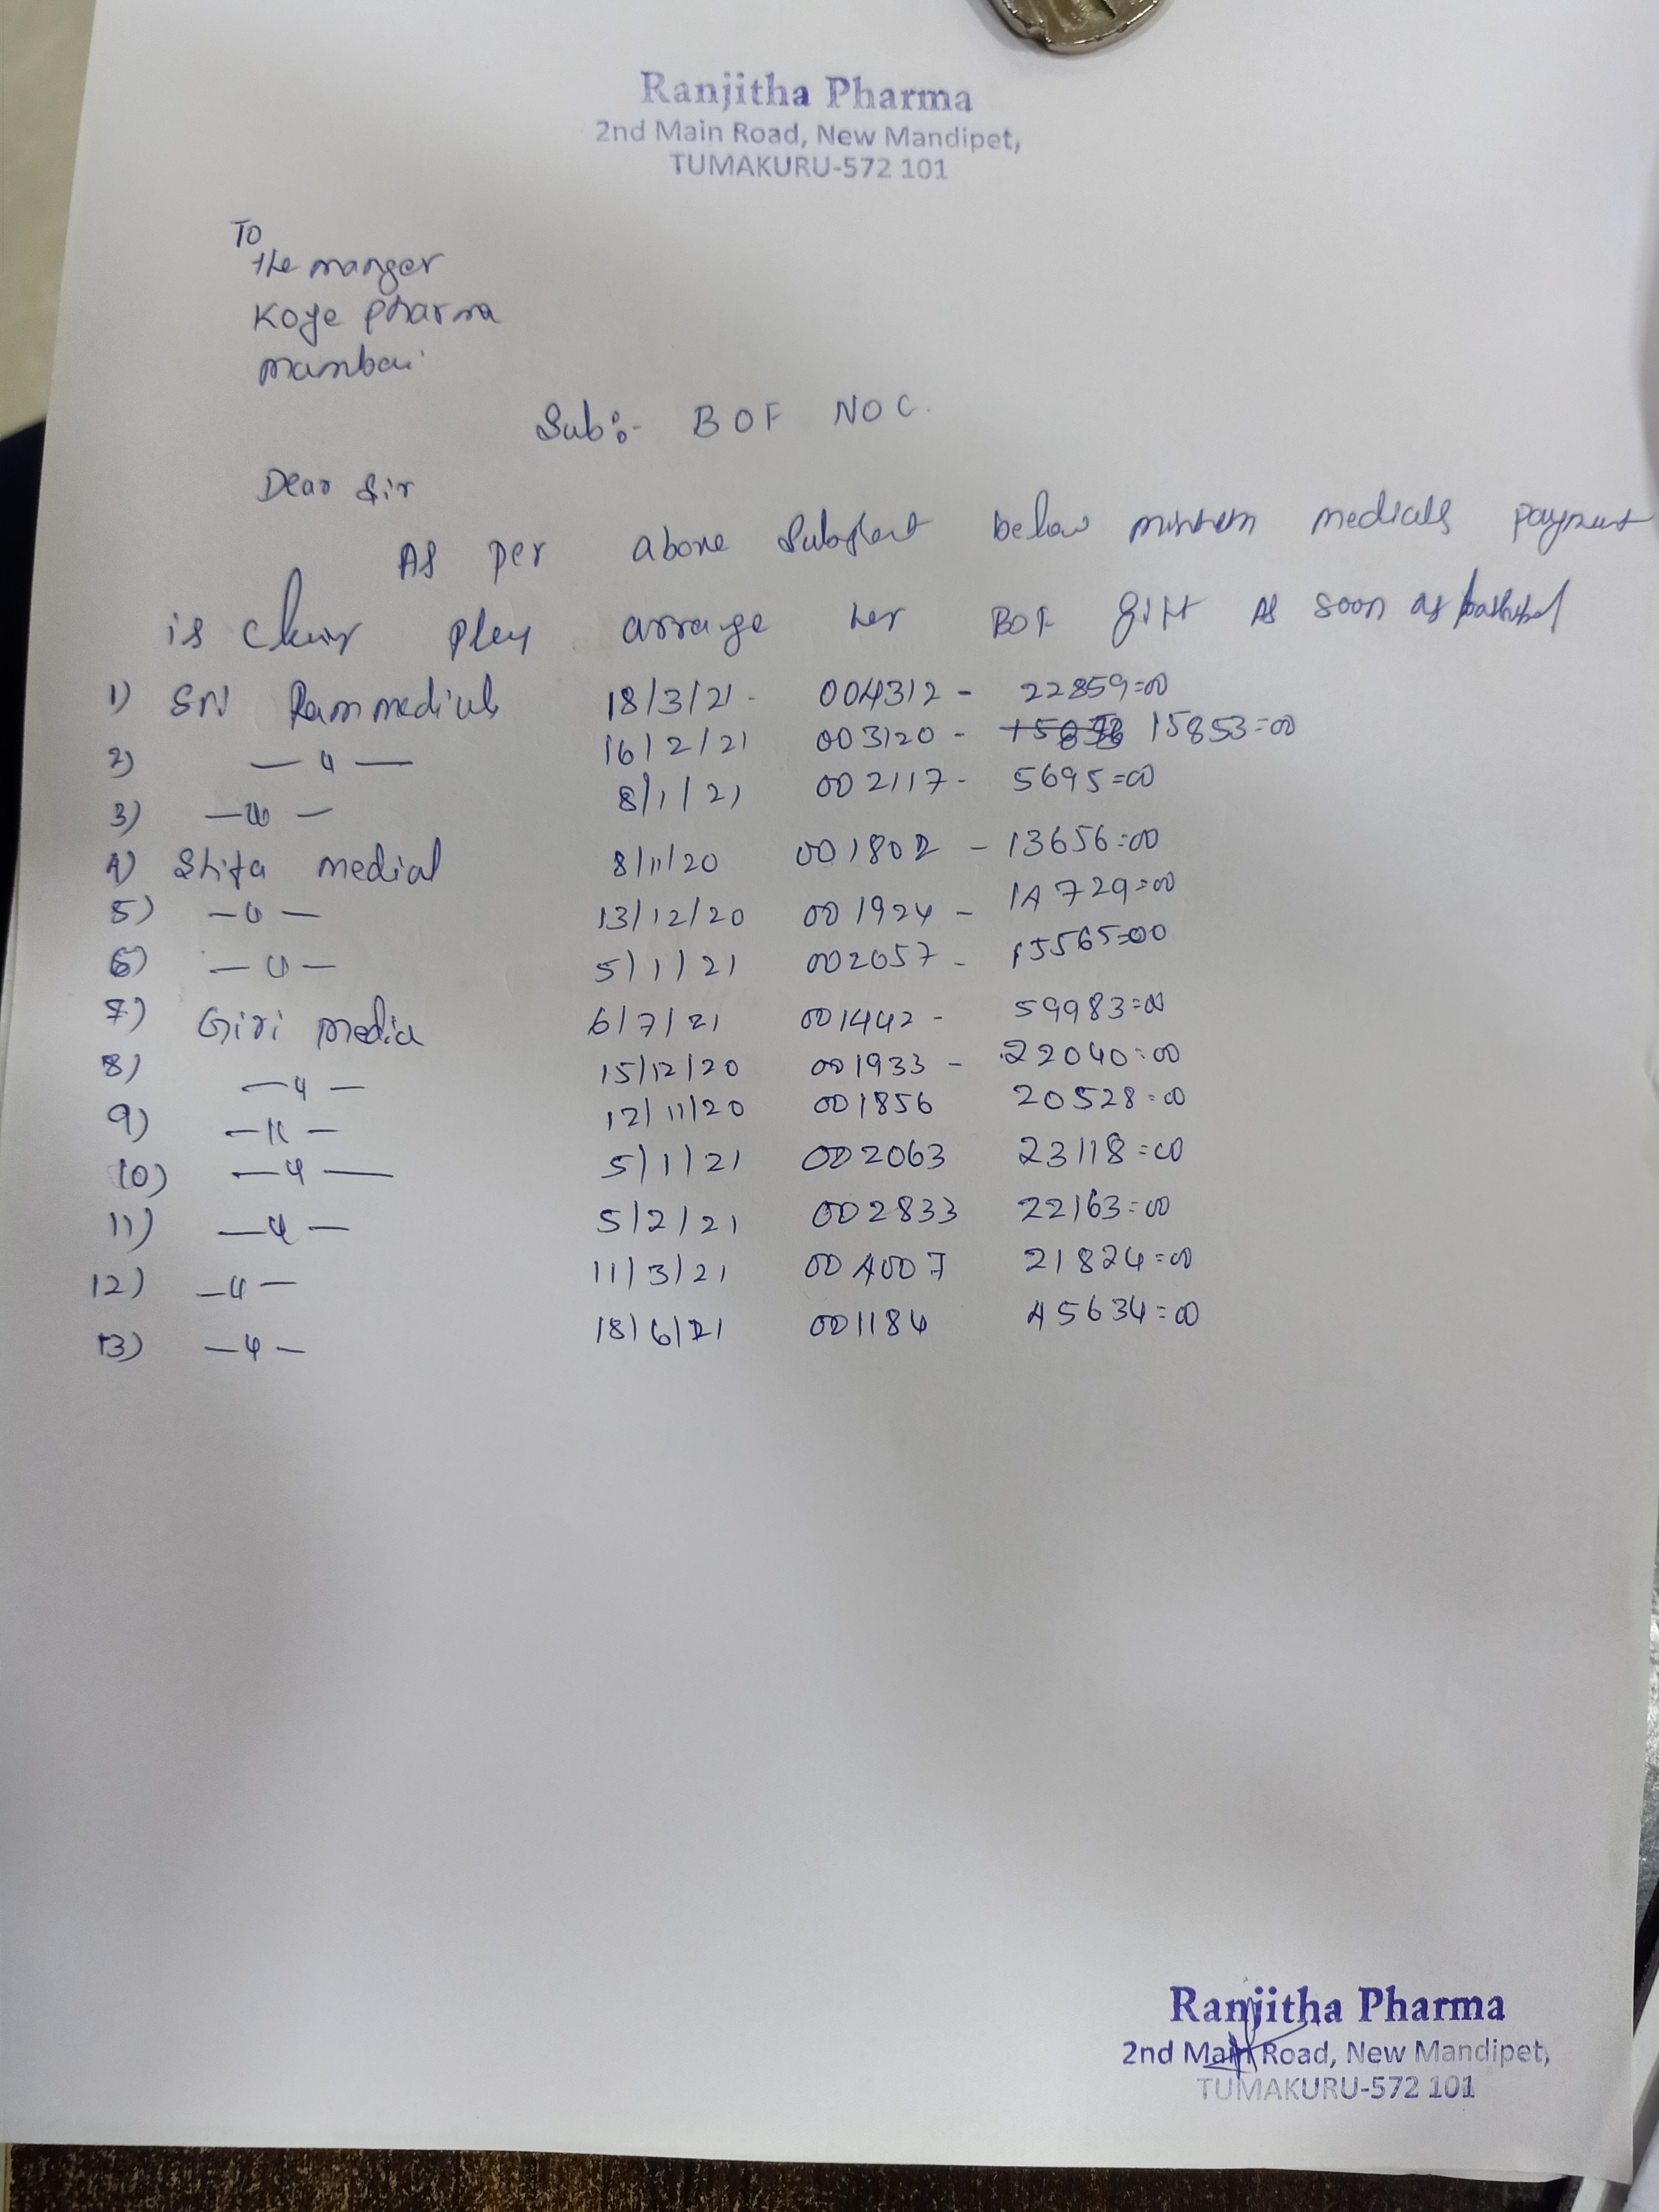 Ranjitha Pharma
2nd Main Road, New Mandipet,
TUMAKURU-572 101
To
the manger
Koye Pharma
mumbai
Sub:- BOF NOC.
Dear Sir
As per above below medicals payment
is arrange BOF gift As soon as
1) Sri Ram medicals 18/3/21- 004312 - 22859=00
2) — 4 — 16/2/21 003120 - 15853=00
3) — 4 — 8/1/21 002117- 5695=00
4) Shifa medial 8/11/20 001802 - 13656=00
5) — 4 — 13/12/20 001924 - 14729=00
6) — 4 — 5/1/21 002057 - 15565=00
7) Giri media 6/7/21 001442 - 59983=00
8) — 4 — 15/12/20 001933 - 22040=00
9) — 11 — 12/11/20 001856 20528=00
10) — 4 — 5/1/21 002063 23118=00
11) — 4 — 5/2/21 002833 22163=00
12) — 4 — 11/3/21 004007 21824=00
13) — 4 — 18/6/21 001184 45634=00
Ranjitha Pharma
2nd Main Road, New Mandipet,
TUMAKURU-572 101